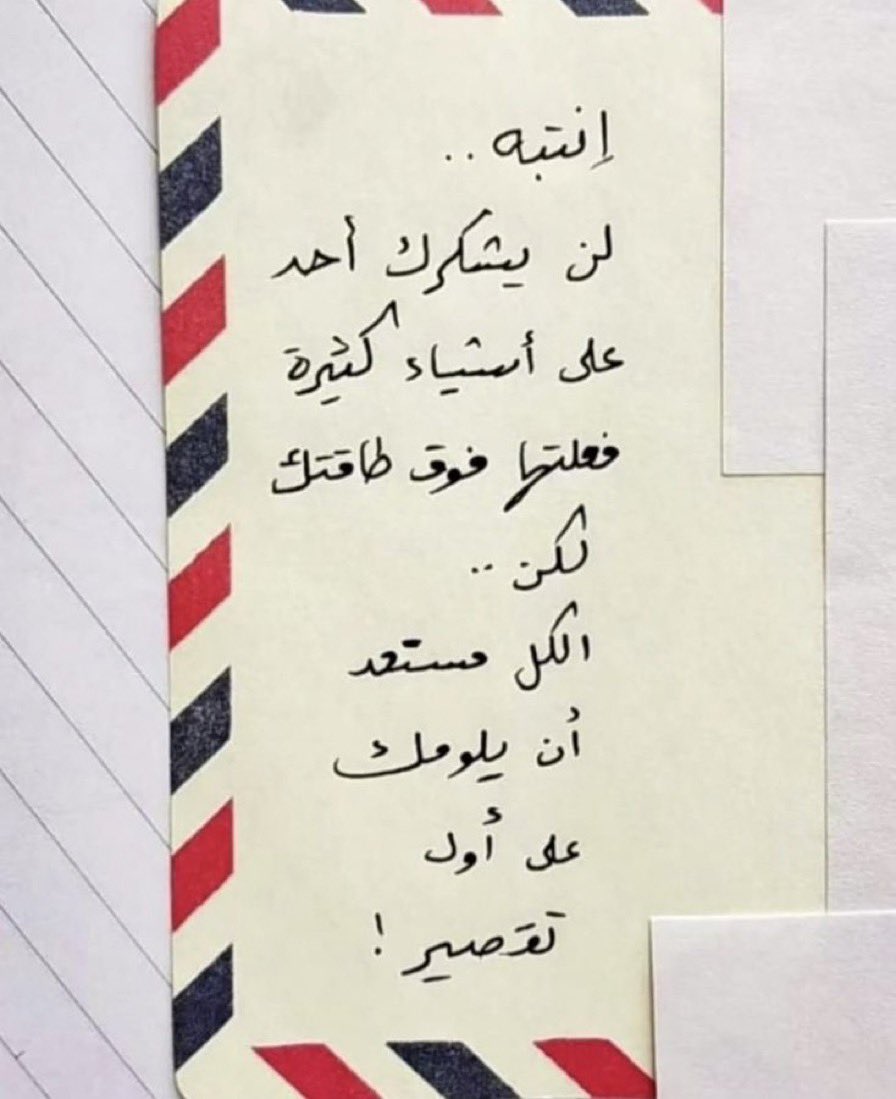 إنتبه ..
لن يشكرك أحد
على أشياء كثيرة
فعلتها فوق طاقتك
لكن ..
الكل مستعد
أن يلومك
على أول
تقصير !